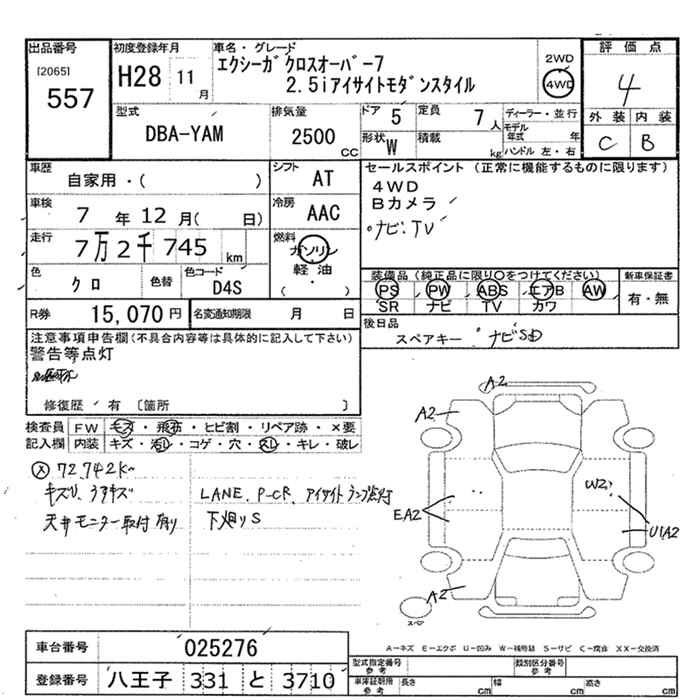 出品番号
[2065]
557
初度登録年月
H28 11 月
車名・グレード
エクシーガクロスオーバー7
2.5iアイサイトモダンスタイル
2WD
4WD
評価点
4
外装 内装
C B
型式
DBA-YAM
排気量
2500 cc
ドア 5
定員 7 人
形状 W
積載 kg
ディーラー・並行
モデル年式 年
ハンドル 左・右
車歴
自家用・( )
シフト
AT
車検
7 年 12 月( 日)
冷房
AAC
走行
7万2千745 km
燃料
ガソリン
軽油
( ・ )
色
クロ
色替
色コード
D4S
R券 15,070 円
名変通知期限 月 日
セールスポイント (正常に機能するものに限ります)
4WD
Bカメラ
ナビ・TV
装備品 (純正品に限り○をつけてください)
PS PW ABS エアB AW
SR ナビ TV カワ
新車保証書
有・無
後日品
スペアキー ナビSD
注意事項申告欄 (不具合内容等は具体的に記入して下さい)
警告等点灯
修復歴 有 〔箇所 〕
検査員 FW キズ・飛石・ヒビ割・リペア跡・×要
記入欄 内装 キズ・汚レ・コゲ・穴・スレ・キレ・破レ
72,742K
天井モニター取付有り
LANE、P-CR、アイサイトランプ点灯
下廻りS
A2
A2
W2
EA2
U1A2
A2
スペア
A-キズ E-エクボ U-凹み W-補修跡 S-サビ C-腐食 XX-交換済
車台番号 025276
登録番号 八王子 331 と 3710
型式指定番号 参考
類別区分番号 参考
車庫証明用 参考 長さ cm 幅 cm 高さ cm